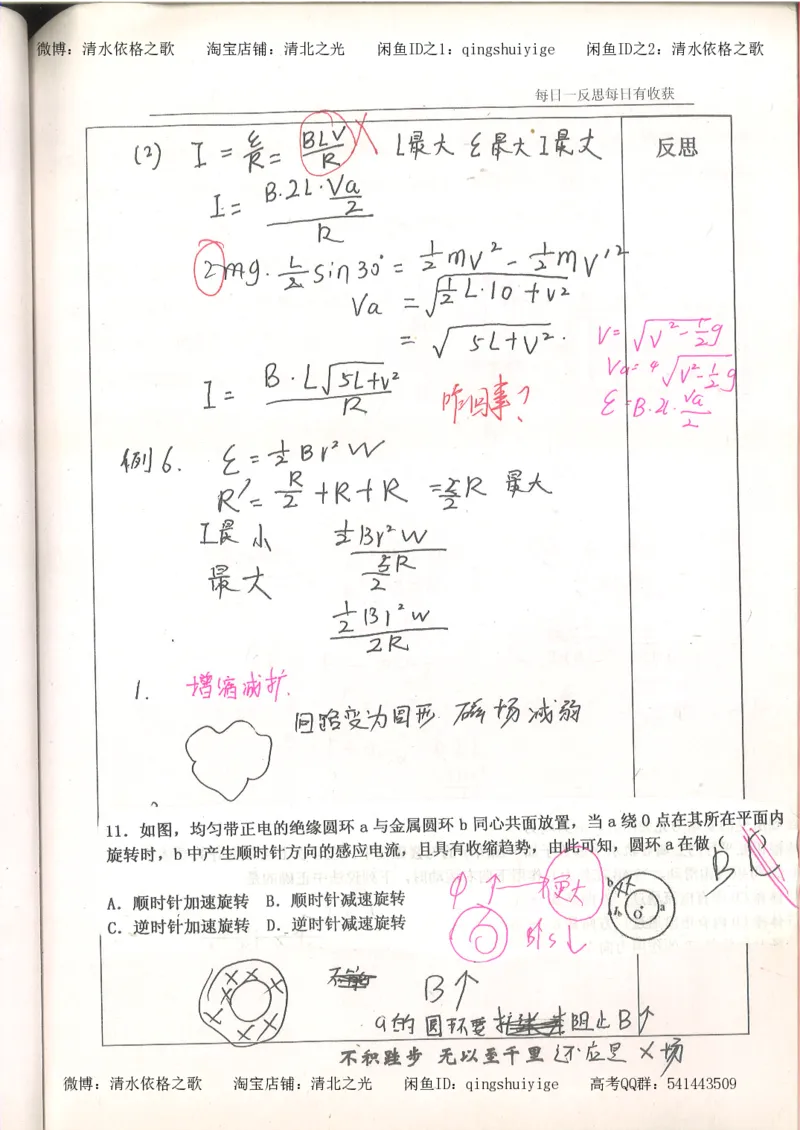 微博：清水依格之歌 淘宝店铺：清北之光 闲鱼ID之1：qingshuiyige 闲鱼ID之2：清水依格之歌
每日一反思每日有收获
(2) I = ε/R = BLV/R L最大 ε最大 I最大
反思
I = B·2L·Va/2 / R
2mg·L/2 sin30° = 1/2mv² - 1/2mv'²
Va = √(1/2 L·10 + v²)
= √(5L+v²).
V= √(v²-1/2g)
Va= 4√(v²-1/2g)
ε=B·2l·va/2
I = B·L√(5L+v²) / R
咋回事?
例6. ε = 1/2Br²W
R' = R/2 + R + R = 5/2R 最大
I最小 1/2Br²W / 5/2R
最大
1/2Bl²w / 2R
1. 增缩减扩.
回路变为圆形 磁场减弱
11．如图，均匀带正电的绝缘圆环 a 与金属圆环 b 同心共面放置，当 a 绕 O 点在其所在平面内
旋转时，b 中产生顺时针方向的感应电流，且具有收缩趋势，由此可知，圆环 a 在做（ ）
B
A．顺时针加速旋转 B．顺时针减速旋转
C．逆时针加速旋转 D．逆时针减速旋转
Φ↑
b
O a
B↑S↓
B↑
a的圆环要 阻止B↑
不积跬步 无以至千里 还应是×场
微博：清水依格之歌 淘宝店铺：清北之光 闲鱼ID：qingshuiyige 高考QQ群：541443509